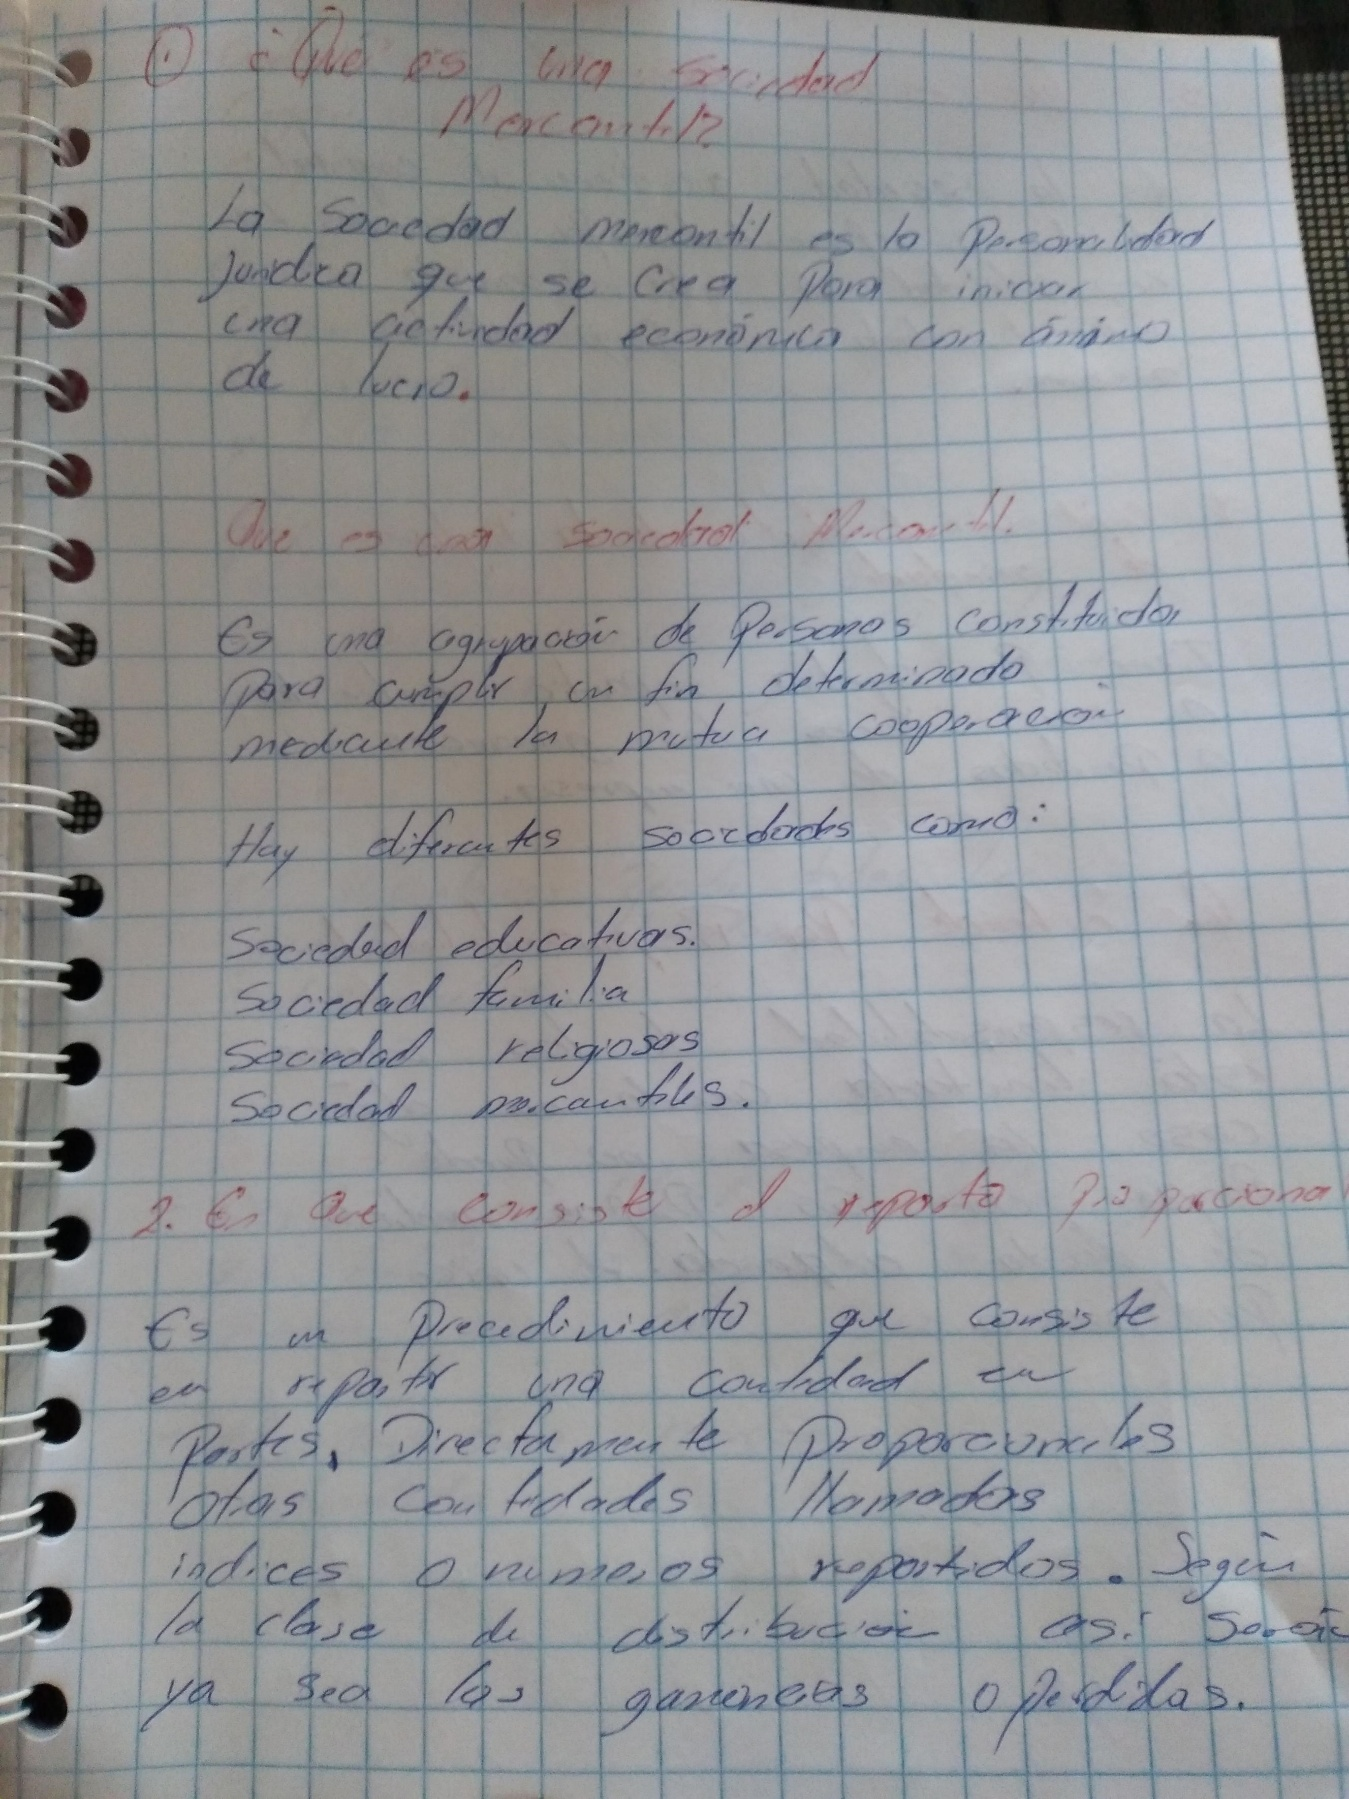 ① ¿Que es una sociedad
Mercantil?
La Sociedad mercantil es la Personalidad
Juridica que se crea para iniciar
una actividad económica con ánimo
de lucro.
Que es una sociedad Mercantil.
Es una agrupación de Personas constituida,
para cumplir un fin determinado
mediante la mutua cooperación
Hay diferentes sociedades como:
Sociedad educativas.
Sociedad familia
Sociedad religiosas
Sociedad mercantiles.
2. En Que consiste el reparto proporcional
Es un Procedimiento que consiste
en repartir una cantidad en
Partes, Directamente proporcionales
otras cantidades llamados
indices o numeros repartidos. Según
la clase de distribución así serán
ya sea las ganancias o perdidas.